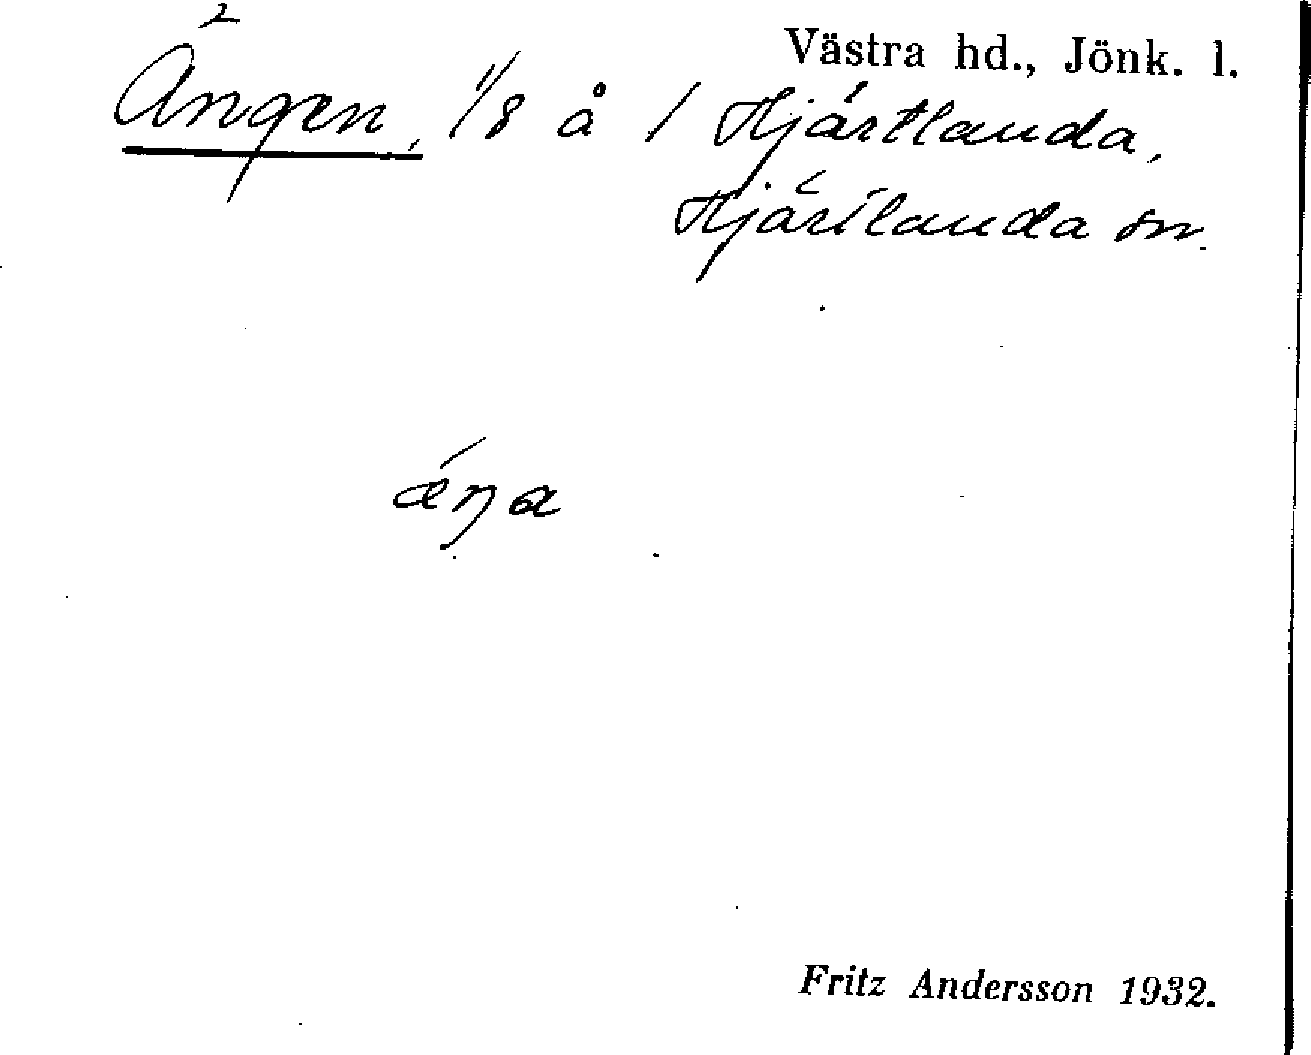 Västra hd., Jönk. l.
Ängen, 1/8 å 1 Hjärtlanda,
Hjärtlanda sn.
ǽŋa
Fritz Andersson 1932.